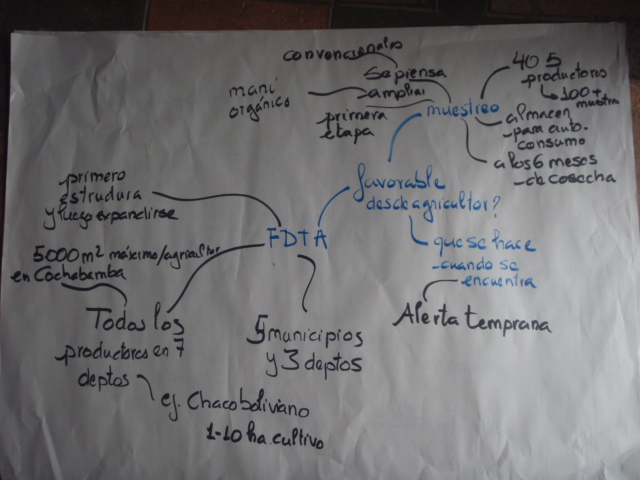 convencionales
se piensa
ampliar
maní
orgánico
primera
etapa
muestreo
4 o 5
productores
100 +
muestras
almacen
- para auto-
consumo
a los 6 meses
- de cosecha
favorable
desde agricultor?
que se hace
- cuando se
encuentra
Alerta temprana
FDTA
primero
estrudura
y luego expandirse
5000 m² máximo/agricultor
en Cochabamba
Todos los
productores en 7
deptos
ej. Chaco boliviano
1-10 ha. cultivo
5 municipios
y 3 deptos